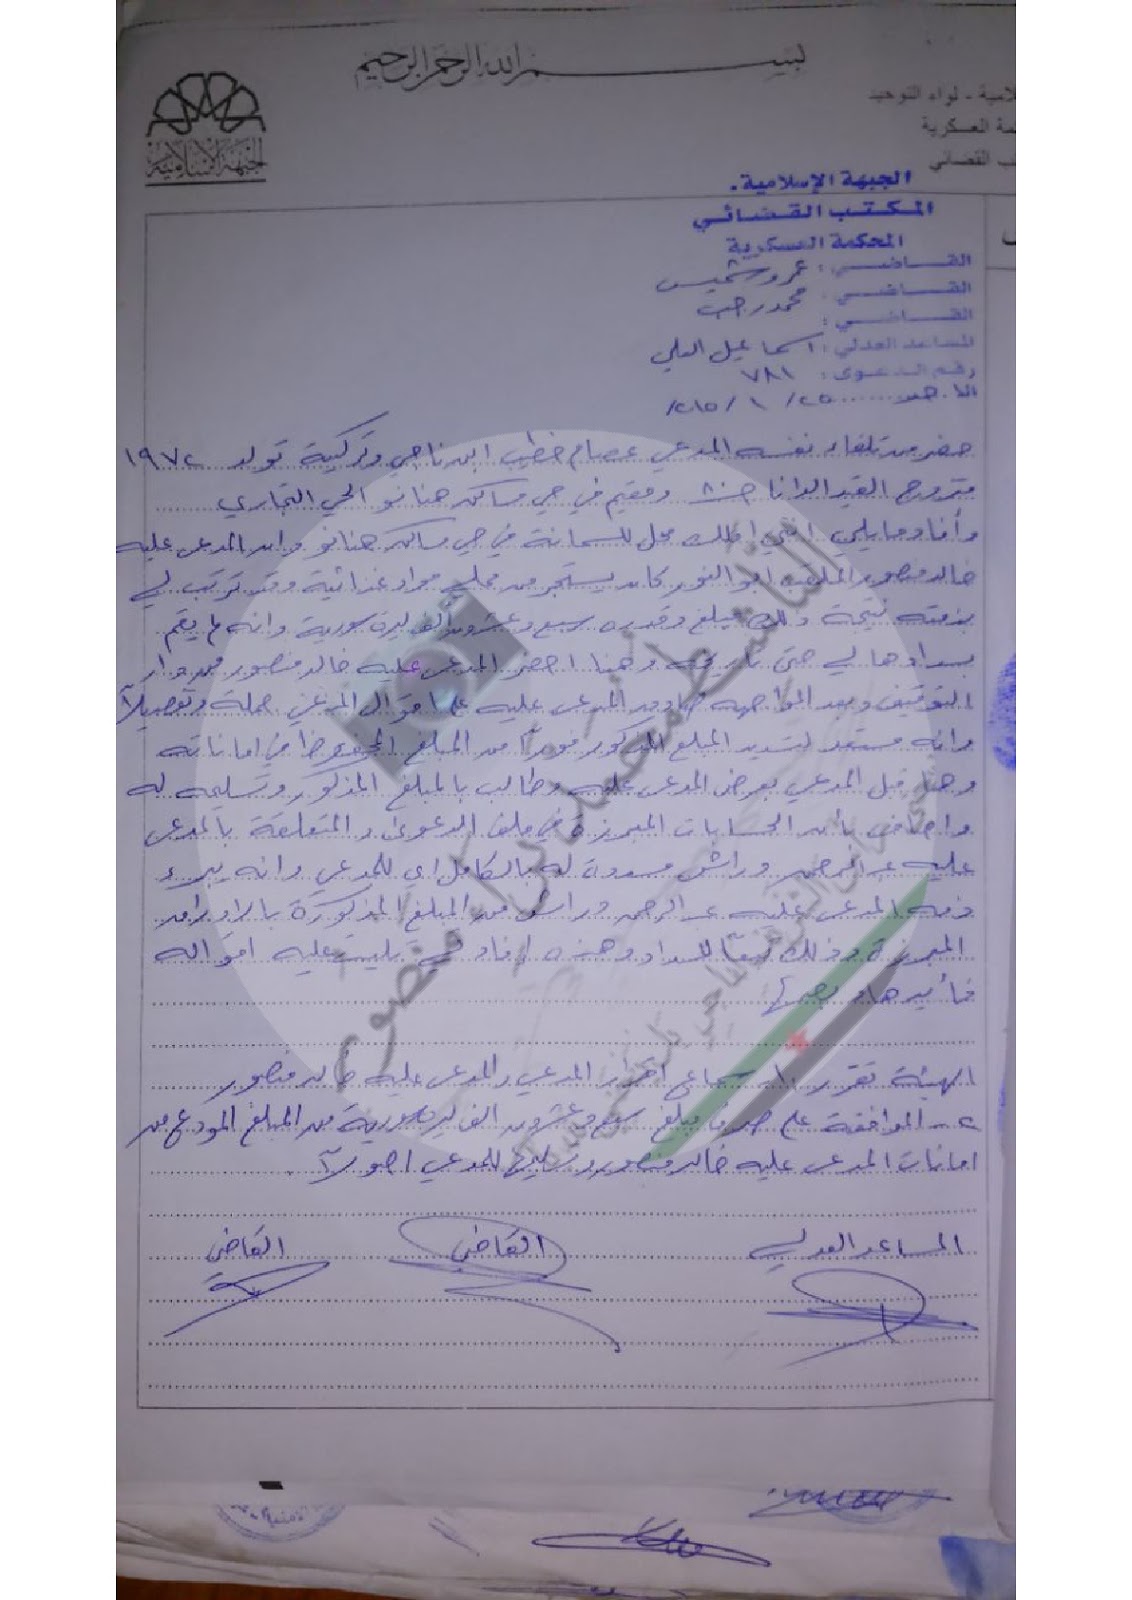 بسم الله الرحمن الرحيم
الجبهة الإسلامية
لواء التوحيد
العسكرية
القضائي
الجبهة الإسلامية.
المكتب القضائي
المحكمة العسكرية
القاضي: عمرو شميس
القاضي: محمد رجب
القاضي:
المساعد العدلي: اسماعيل العلي
رقم الدعوى: ٧٨١
الاحد ٢٥ / ١ / ٢٠١٥
حضر من تلقاء نفسه المدعي عصام خطيب ابن ناجي وتركية تولد ١٩٧٢
متزوج القيد الدانا خ ومقيم في حي مساكن هنانو الحي التجاري
وأفاد ما يلي انني املك محل للسمانة في حي مساكن هنانو وان المدعى عليه
خالد منصور الملقب ابو النور كان يستجر من محلي مواد غذائية وقد ترتب لي
بذمته نتيجة ذلك مبلغ وقدره سبع وعشرون ألف ليرة سورية وانه لم يقم
بسدادها لي حتى تاريخه وهنا احضر المدعى عليه خالد منصور من دار
التوقيف وبعد المواجهة صادق المدعى عليه على اقوال المدعي جملة وتفصيلاً
وانه مستعد لتسديد المبلغ المذكور فوراً من المبلغ المحفوظ في اماناته
وهنا قبل المدعي بعرض المدعى عليه وطالب بالمبلغ المذكور وتسليمه له
واضاف بان الحسابات المبرزة في ملف الدعوى والمتعلقة بالمدعى
عليه عبد الرحمن وراش مسددة له بالكامل اي للمدعي وانه يبرء
ذمة المدعى عليه عبد الرحمن وراش من المبلغ المذكورة بالاوراق
المبرزة وذلك تبعاً للسداد وهذه إفادتي تليت عليه اقواله
فأيدها وبصم
الهيئة تقرر ١- استماع اقرار المدعي والمدعى عليه خالد منصور
٢- الموافقة على صرف مبلغ سبع وعشرون الف ليرة سورية من المبلغ المودع من
امانات المدعى عليه خالد منصور وتسليمها للمدعي اصولاً.
المساعد العدلي
القاضي
القاضي
الناشط أحمد براء منصور